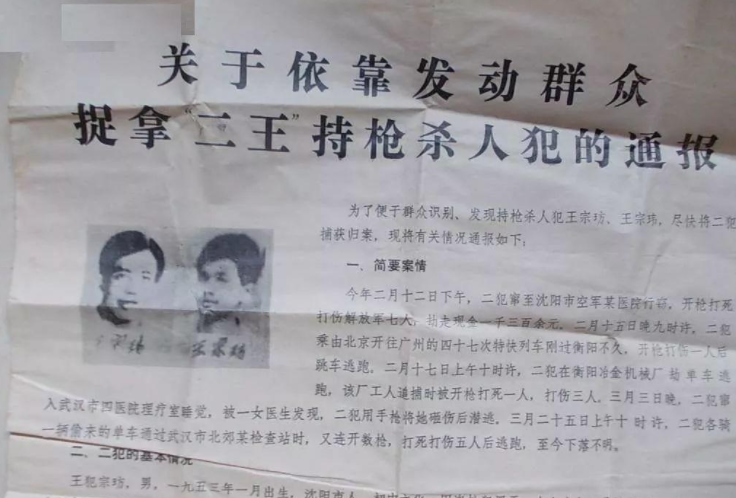 关于依靠发动群众
捉拿“二王”持枪杀人犯的通报
为了便于群众识别、发现持枪杀人犯王宗坊、王宗玮，尽快将二犯
捕获归案，现将有关情况通报如下：
一、简要案情
今年二月十二日下午，二犯窜至沈阳市空军某医院行窃，开枪打死
打伤解放军七人，劫走现金一千三百余元。二月十五日晚九时许，二犯
乘由北京开往广州的四十七次特快列车刚过衡阳不久，开枪打伤一人后
跳车逃跑，二月十七日上午十时许，二犯在衡阳冶金机械厂劫单车逃
跑，该厂工人追捕时被开枪打死一人，打伤三人。三月三日晚，二犯窜
入武汉市四医院理疗室睡觉，被一女医生发现，二犯用手枪将她砸伤后潜逃。三月二十五日上午十时许，二犯各骑
一辆偷来的单车通过武汉市北郊某检查站时，又连开数枪，打死打伤五人后逃跑，至今下落不明。
二、二犯的基本情况
王犯宗坊，男，一九五三年一月出生，沈阳市人，初中文化